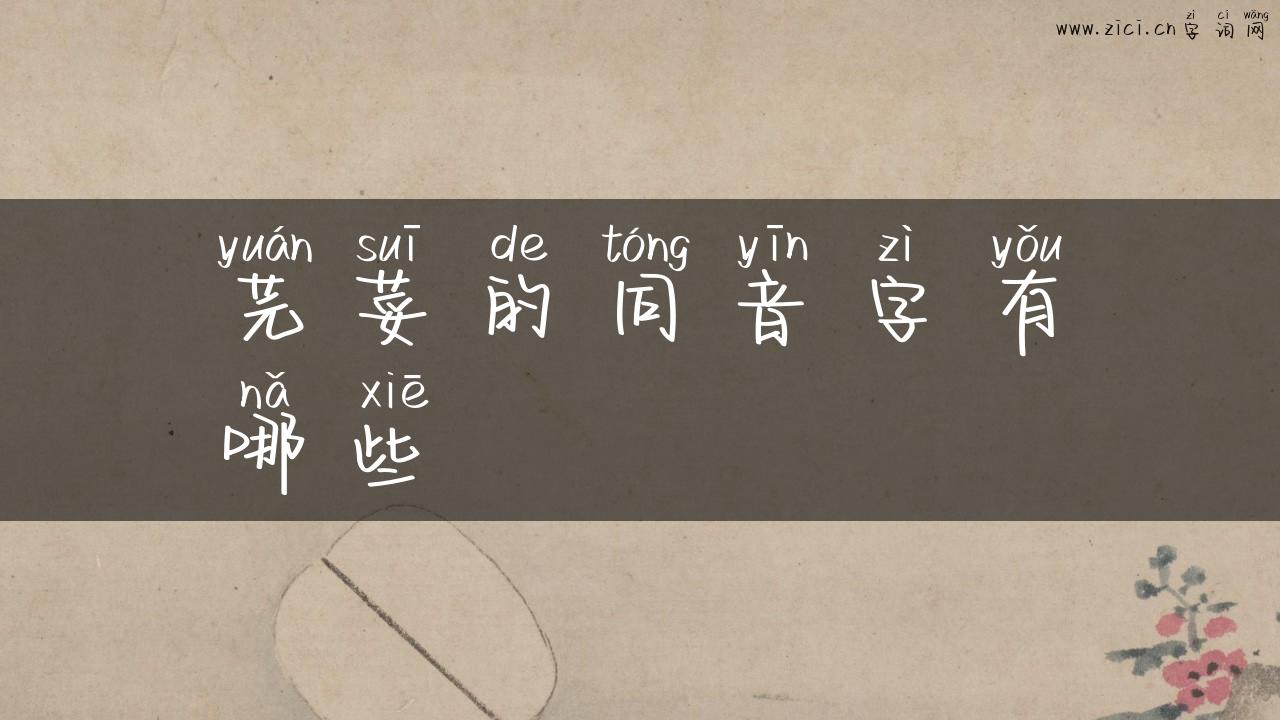 zì cí wǎng
www.zici.cn 字 词 网
yuán suī de tóng yīn zì yǒu
芫 荽 的 同 音 字 有
nǎ xiē
哪 些